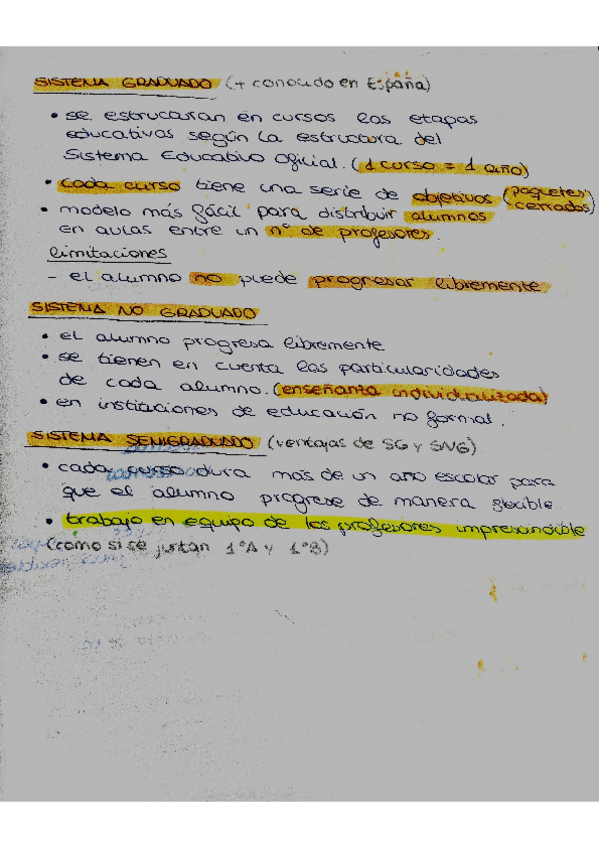 SISTEMA GRADUADO (+ conocido en España)
• se estructuran en cursos las etapas
educativas según la estructura del
Sistema Educativo Oficial. (1 curso = 1 año)
• cada curso tiene una serie de objetivos (paquetes cerrados)
• modelo más fácil para distribuir alumnos
en aulas entre un nº de profesores.
limitaciones
- el alumno no puede progresar libremente.
SISTEMA NO GRADUADO
• el alumno progresa libremente
• se tienen en cuenta las particularidades
de cada alumno. (enseñanza individualizada)
• en instituciones de educación no formal.
SISTEMA SEMIGRADUADO (ventajas de SG y SNG)
• cada curso dura más de un año escolar para
que el alumno progrese de manera flexible.
• trabajo en equipo de los profesores imprescindible
(como si se juntan 1ºA y 1ºB)